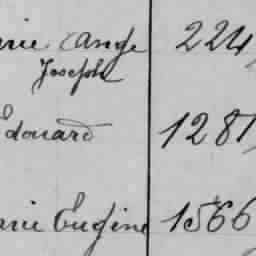 rie Ange 224
Joseph
Edouard 1281
arie Eugène 1566